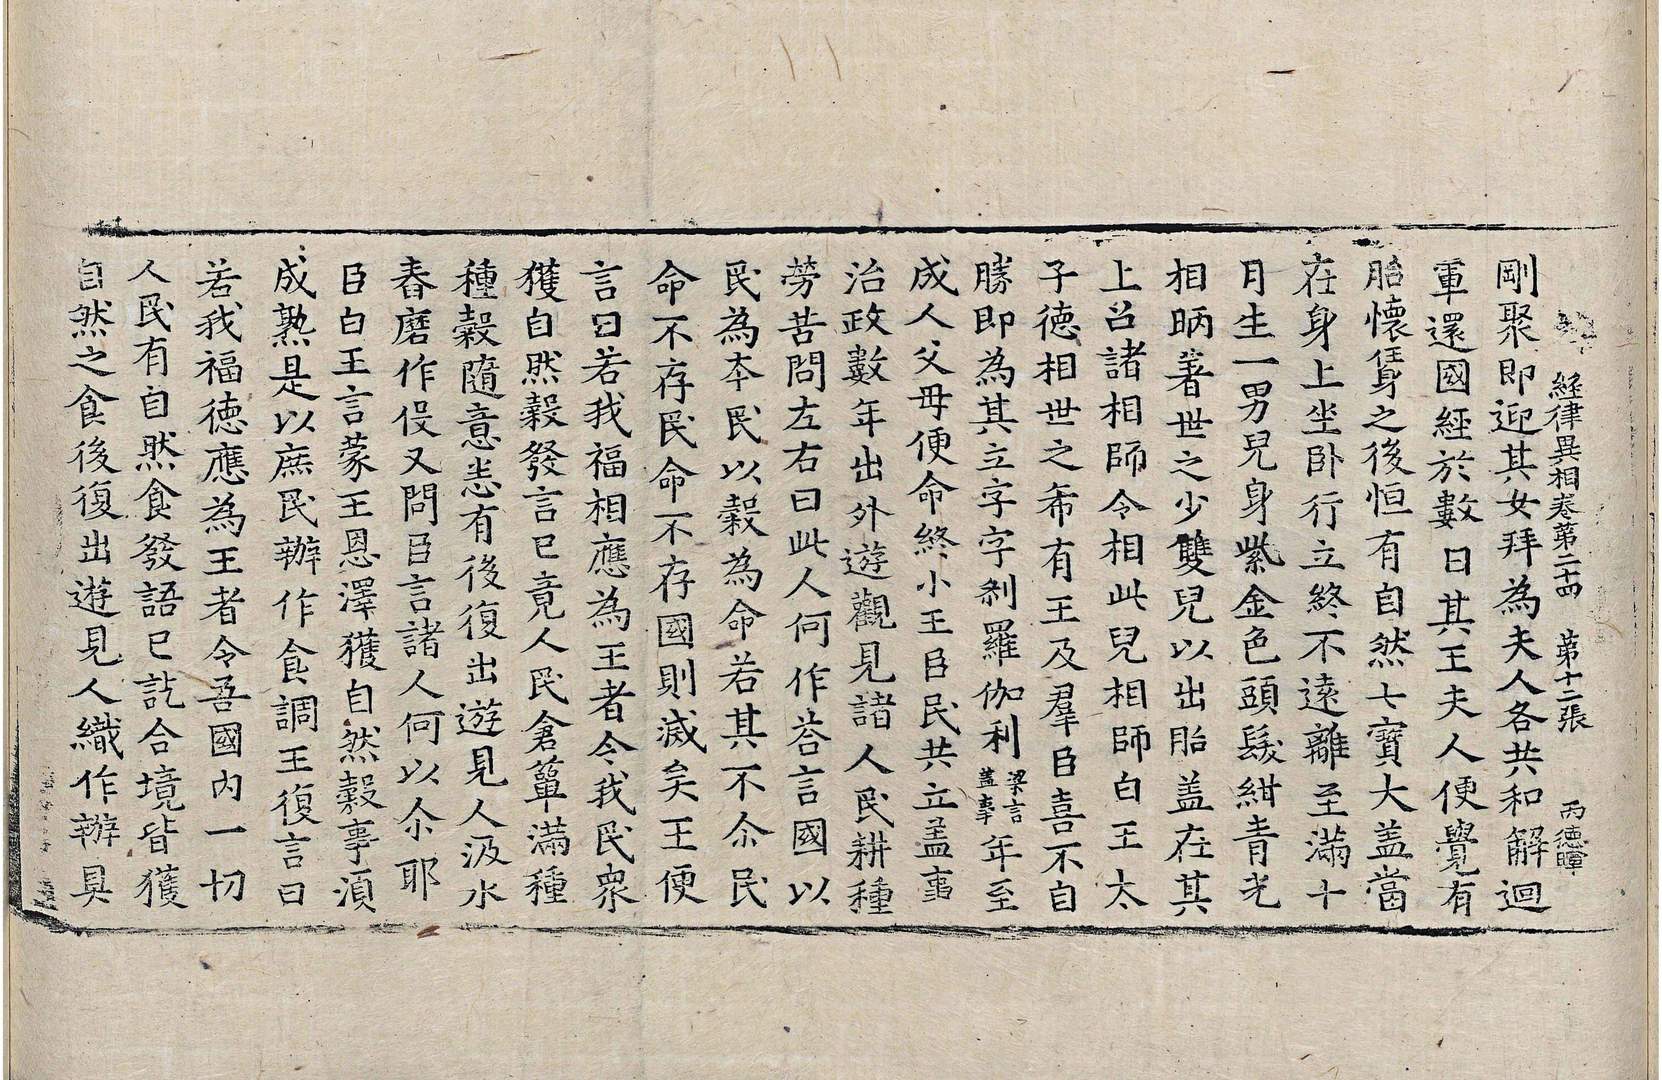 經律異相卷第二十四 第十二張 丙 德暲
剛聚即迎其女拜為夫人各共和解迴
軍還國經於數日其王夫人便覺有
胎懷𨈬身之後恒有自然七寶大盖當
在身上坐卧行立終不遠離至滿十
月生一男兒身紫金色頭髮紺青光
相昞著世之少雙兒以出胎盖在其
上召諸相師令相此兒相師白王太
子德相世之希有王及羣臣喜不自
勝即為其立字字刹羅伽利梁言盖事年至
成人父母便命終小王臣民共立盖事
治政數年出外遊觀見諸人民耕種
勞苦問左右曰此人何作荅言國以
民為本民以穀為命若其不尒民
命不存民命不存國則滅矣王便
言曰若我福相應為王者令我民眾
獲自然穀發言已竟人民倉簞滿種
種穀隨意恣有後復出遊見人汲水
舂磨作役又問臣言諸人何以尒耶
臣白王言蒙王恩澤獲自然穀事湏
成熟是以庶民辦作食調王復言曰
若我福德應為王者令吾國內一切
人民有自然食發語已訖合境皆獲
自然之食後復出遊見人織作辦具